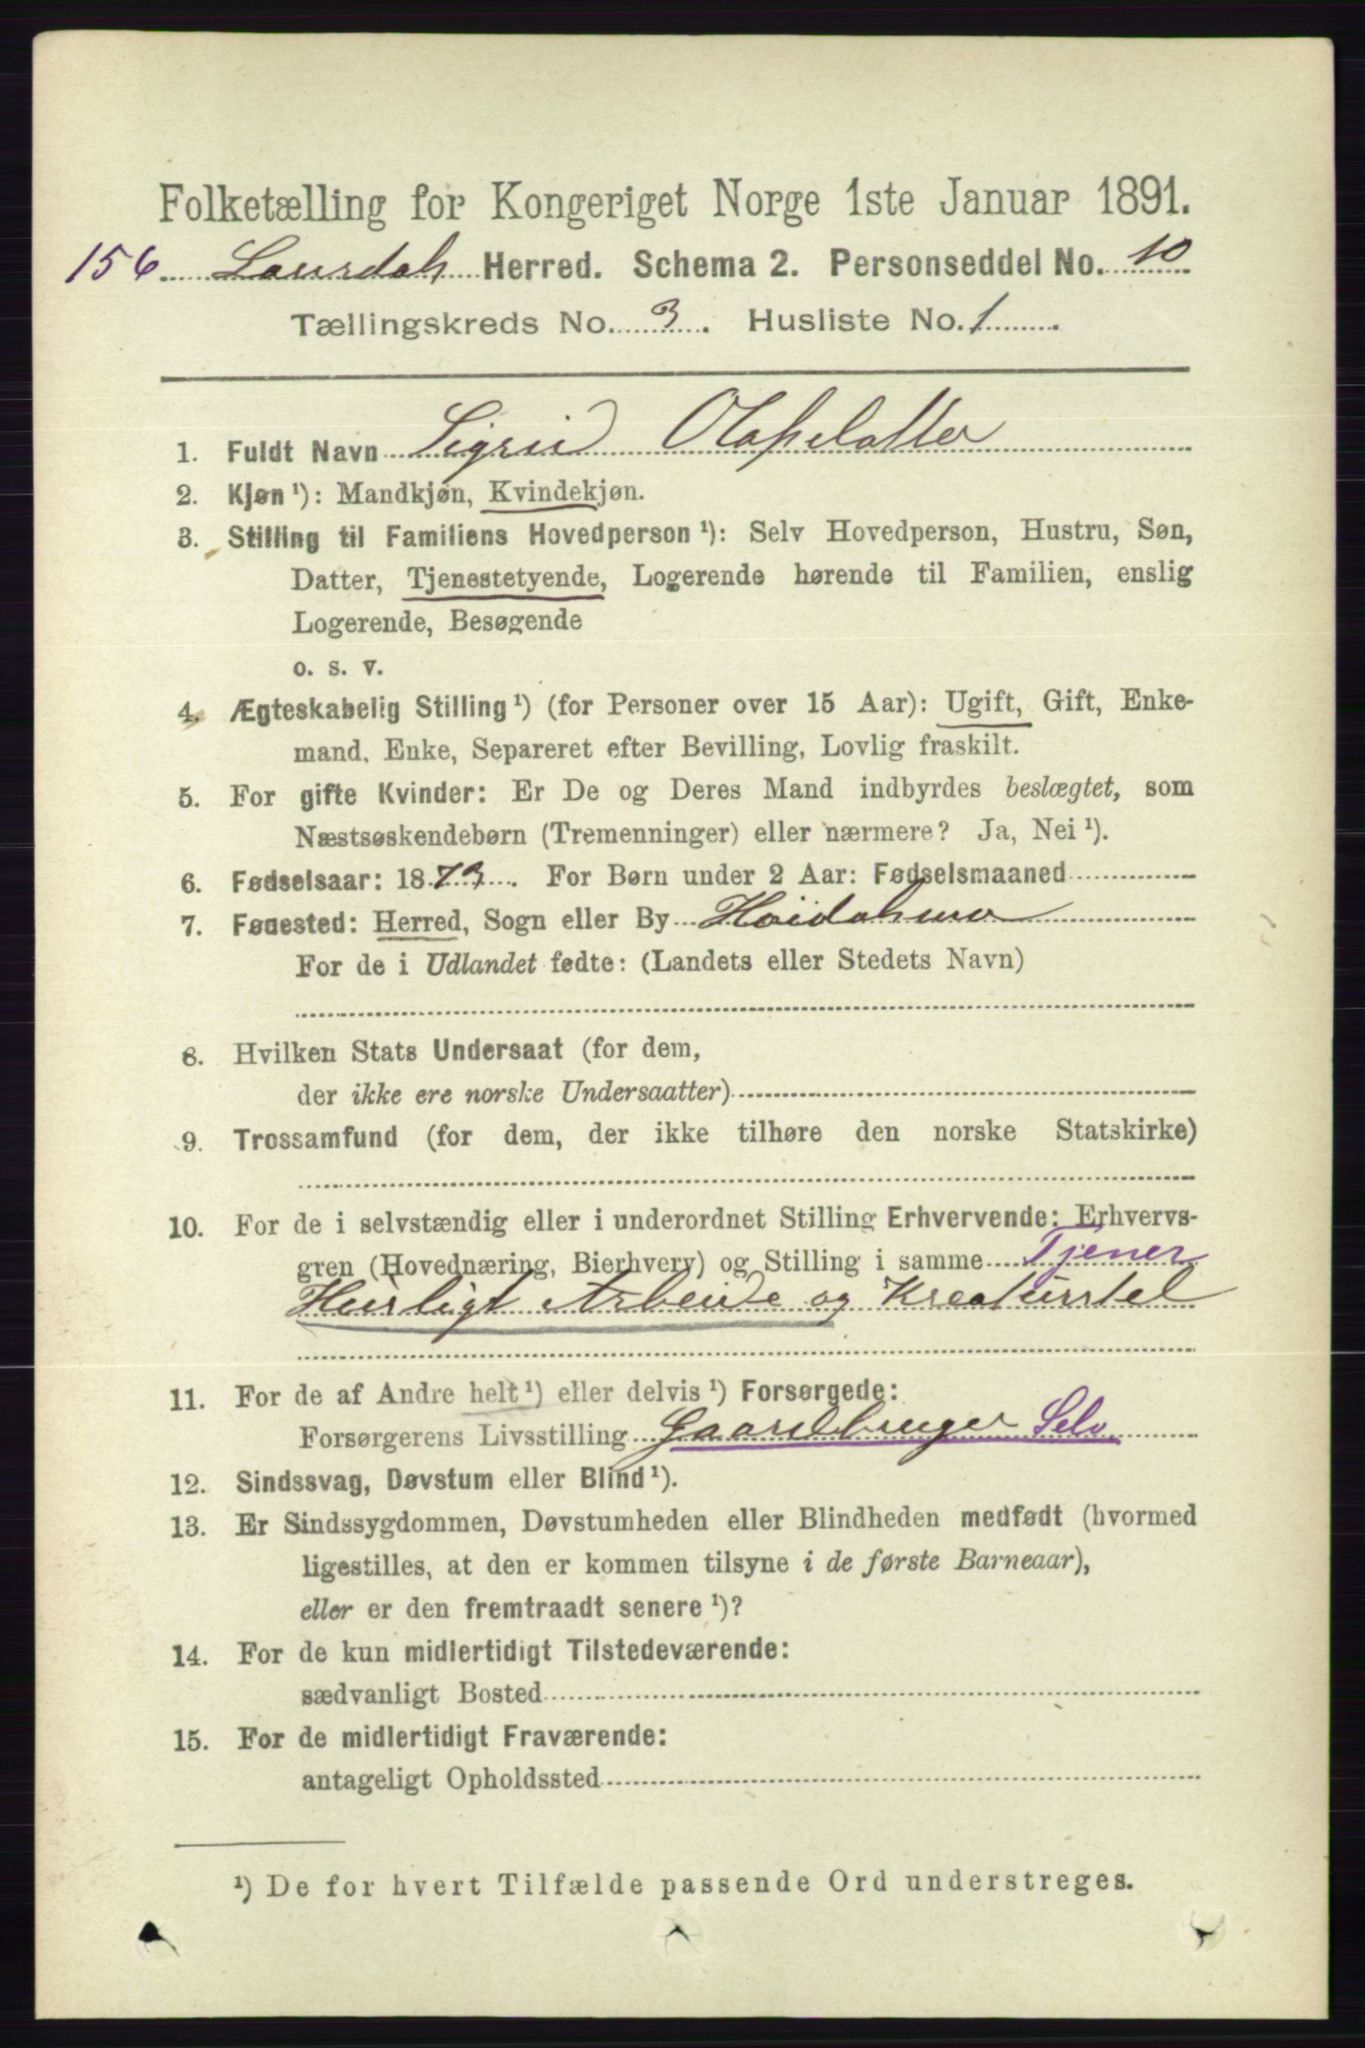 Folketælling for Kongeriget Norge 1ste Januar 1891.
156 Laurdal Herred. Schema 2. Personseddel No. 10
Tællingskreds No. 3. Husliste No. 1
1. Fuldt Navn Sigrid Olafsdatter
2. Kjøn ¹): Mandkjøn, Kvindekjøn.
3. Stilling til Familiens Hovedperson ¹): Selv Hovedperson, Hustru, Søn,
Datter, Tjenestetyende, Logerende hørende til Familien, enslig
Logerende, Besøgende
o. s. v.
4. Ægteskabelig Stilling ¹) (for Personer over 15 Aar): Ugift, Gift, Enke-
mand, Enke, Separeret efter Bevilling, Lovlig fraskilt.
5. For gifte Kvinder: Er De og Deres Mand indbyrdes beslægtet, som
Næstsøskendebørn (Tremenninger) eller nærmere? Ja, Nei ¹).
6. Fødselsaar: 1873. For Børn under 2 Aar: Fødselsmaaned
7. Fødested: Herred, Sogn eller By Hoidalsmo
For de i Udlandet fødte: (Landets eller Stedets Navn)
8. Hvilken Stats Undersaat (for dem,
der ikke ere norske Undersaatter)
9. Trossamfund (for dem, der ikke tilhøre den norske Statskirke)
10. For de i selvstændig eller i underordnet Stilling Erhvervende: Erhvervs-
gren (Hovednæring, Bierhverv) og Stilling i samme Tjener
Huusligt Arbeide og Kreaturstel
11. For de af Andre helt ¹) eller delvis ¹) Forsørgede:
Forsørgerens Livsstilling Gaardbruger Selv
12. Sindssvag, Døvstum eller Blind ¹).
13. Er Sindssygdommen, Døvstumheden eller Blindheden medfødt (hvormed
ligestilles, at den er kommen tilsyne i de første Barneaar),
eller er den fremtraadt senere ¹)?
14. For de kun midlertidigt Tilstedeværende:
sædvanligt Bosted
15. For de midlertidigt Fraværende:
antageligt Opholdssted
¹) De for hvert Tilfælde passende Ord understreges.